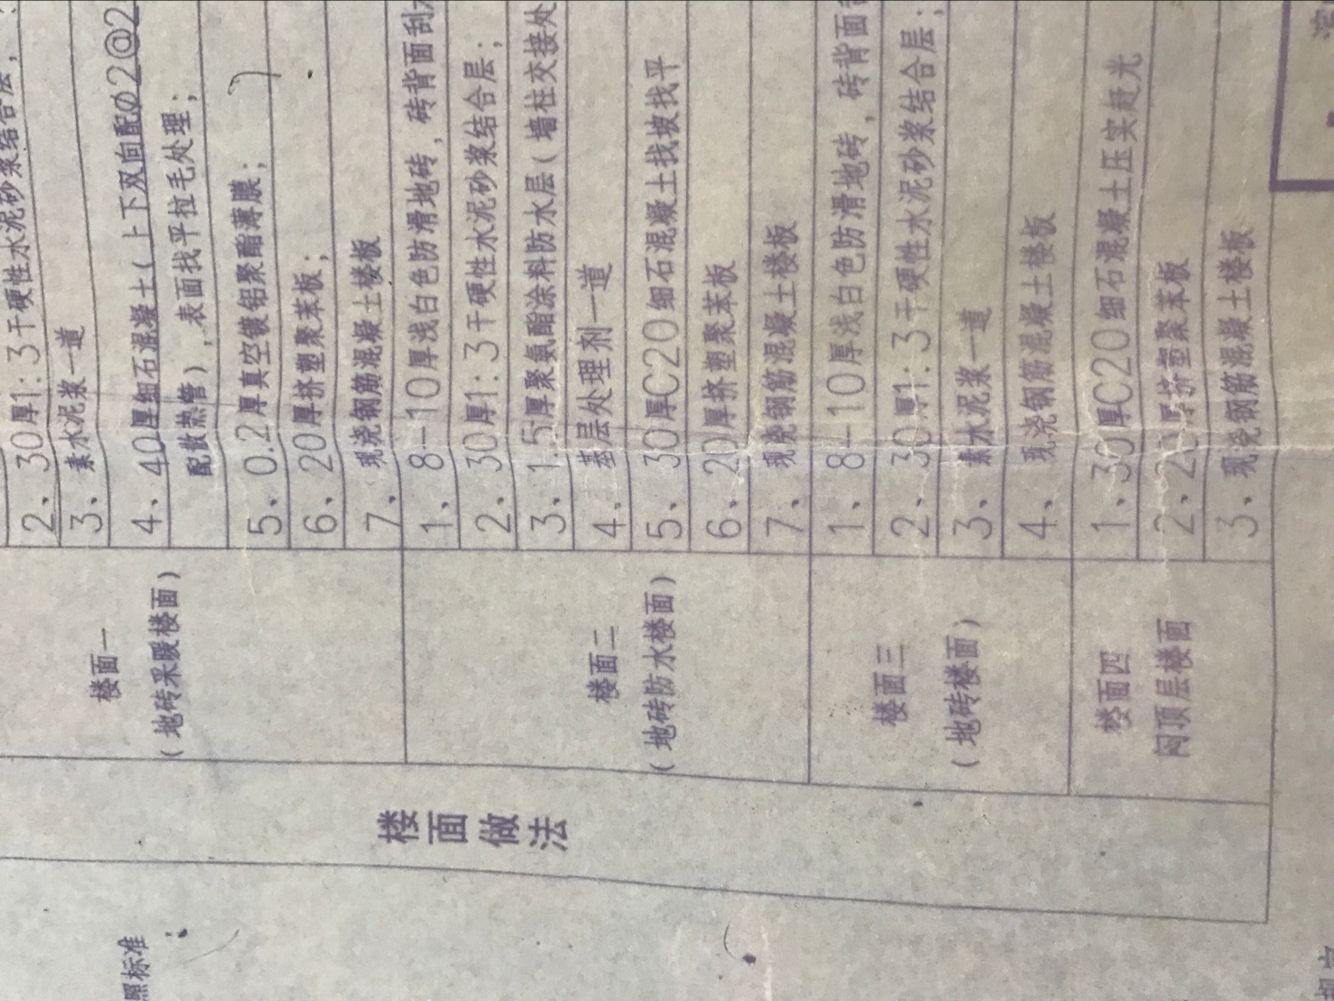 楼面做法
楼面一
(地砖采暖楼面)
2、30厚1:3干硬性水泥砂浆结合层,
3、素水泥浆一道
4、40厚细石混凝土(上下双向配ø2@2
配散热管),表面找平拉毛处理;
5、0.2厚真空镀铝聚酯薄膜;
6、20厚挤塑聚苯板;
7、现浇钢筋混凝土楼板
楼面二
(地砖防水楼面)
1、8-10厚浅白色防滑地砖,砖背面刮
2、30厚1:3干硬性水泥砂浆结合层;
3、1.5厚聚氨酯涂料防水层(墙柱交接处
4、基层处理剂一道
5、30厚C20细石混凝土找坡找平
6、20厚挤塑聚苯板
7、现浇钢筋混凝土楼板
楼面三
(地砖楼面)
1、8-10厚浅白色防滑地砖,砖背面
2、30厚1:3干硬性水泥砂浆结合层;
3、素水泥浆一道
4、现浇钢筋混凝土楼板
楼面四
闷顶层楼面
1、30厚C20细石混凝土压实赶光
2、20厚挤塑聚苯板
3、现浇钢筋混凝土楼板
照标准